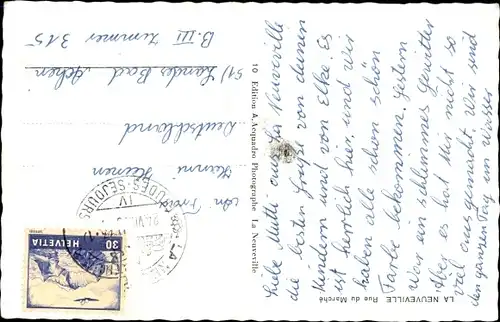 LA NEUVEVILLE Rue du Marché
Liebe Mutti aus La Neuveville
die besten Grüße von deinen
Kindern und von Elke. Es
ist herrlich hier und wir
haben alle schon schön
Farbe bekommen. Gestern
war ein schlimmes Gewitter
Aber es hat mir nicht so
viel ausgemacht. Wir sind
den ganzen Tag im Wasser
10 Edition A. Acquadro Photographe La Neuveville
HELVETIA
30
LA
IV
DES SÉJOURS
An Frau
Hanni
Heinen
Deutschland
51) Landes Bad Aachen
B. III Zimmer 315